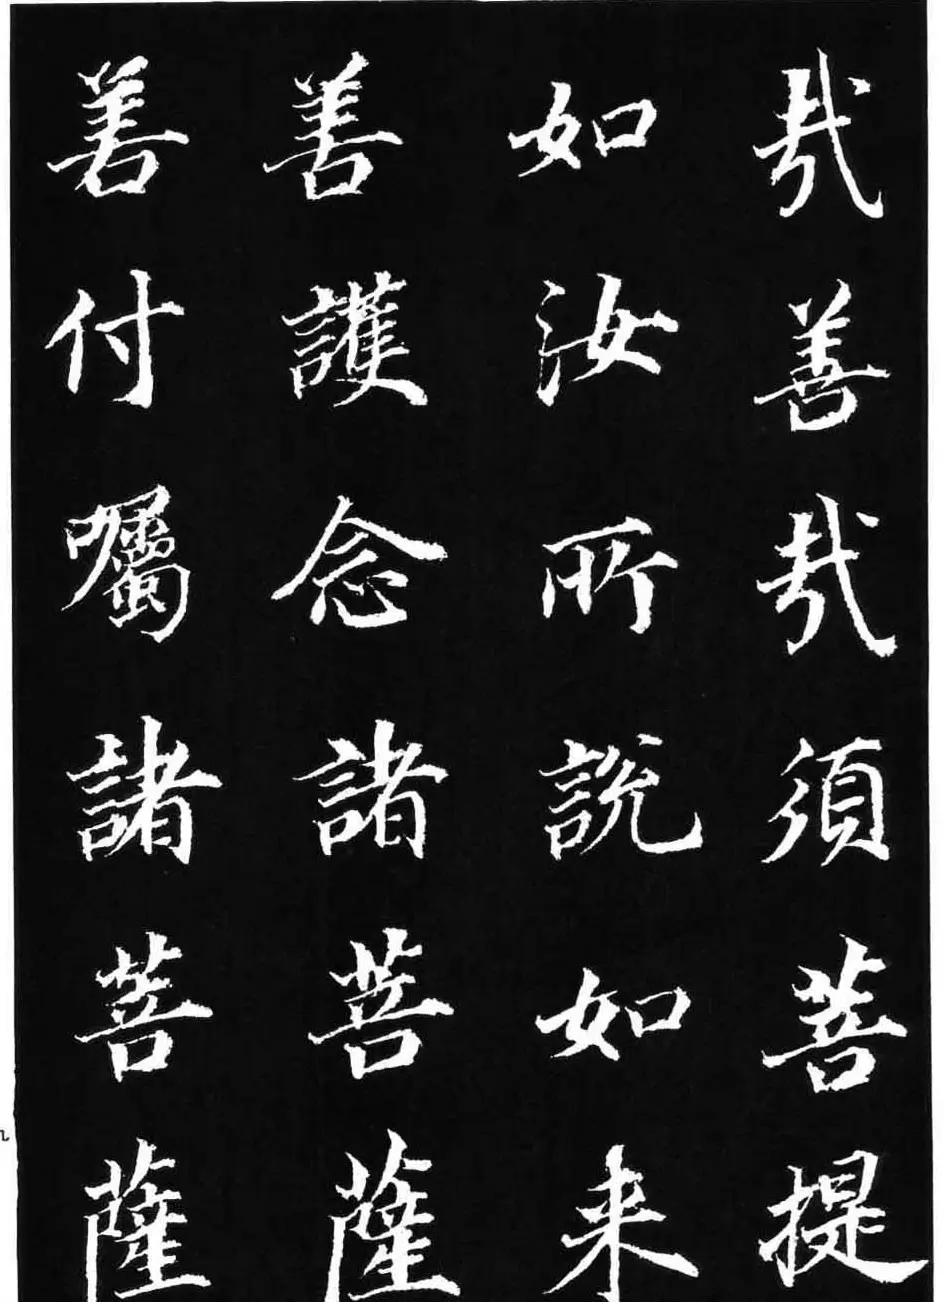 哉善哉須菩提
如汝所說如来
善護念諸菩薩
善付囑諸菩薩